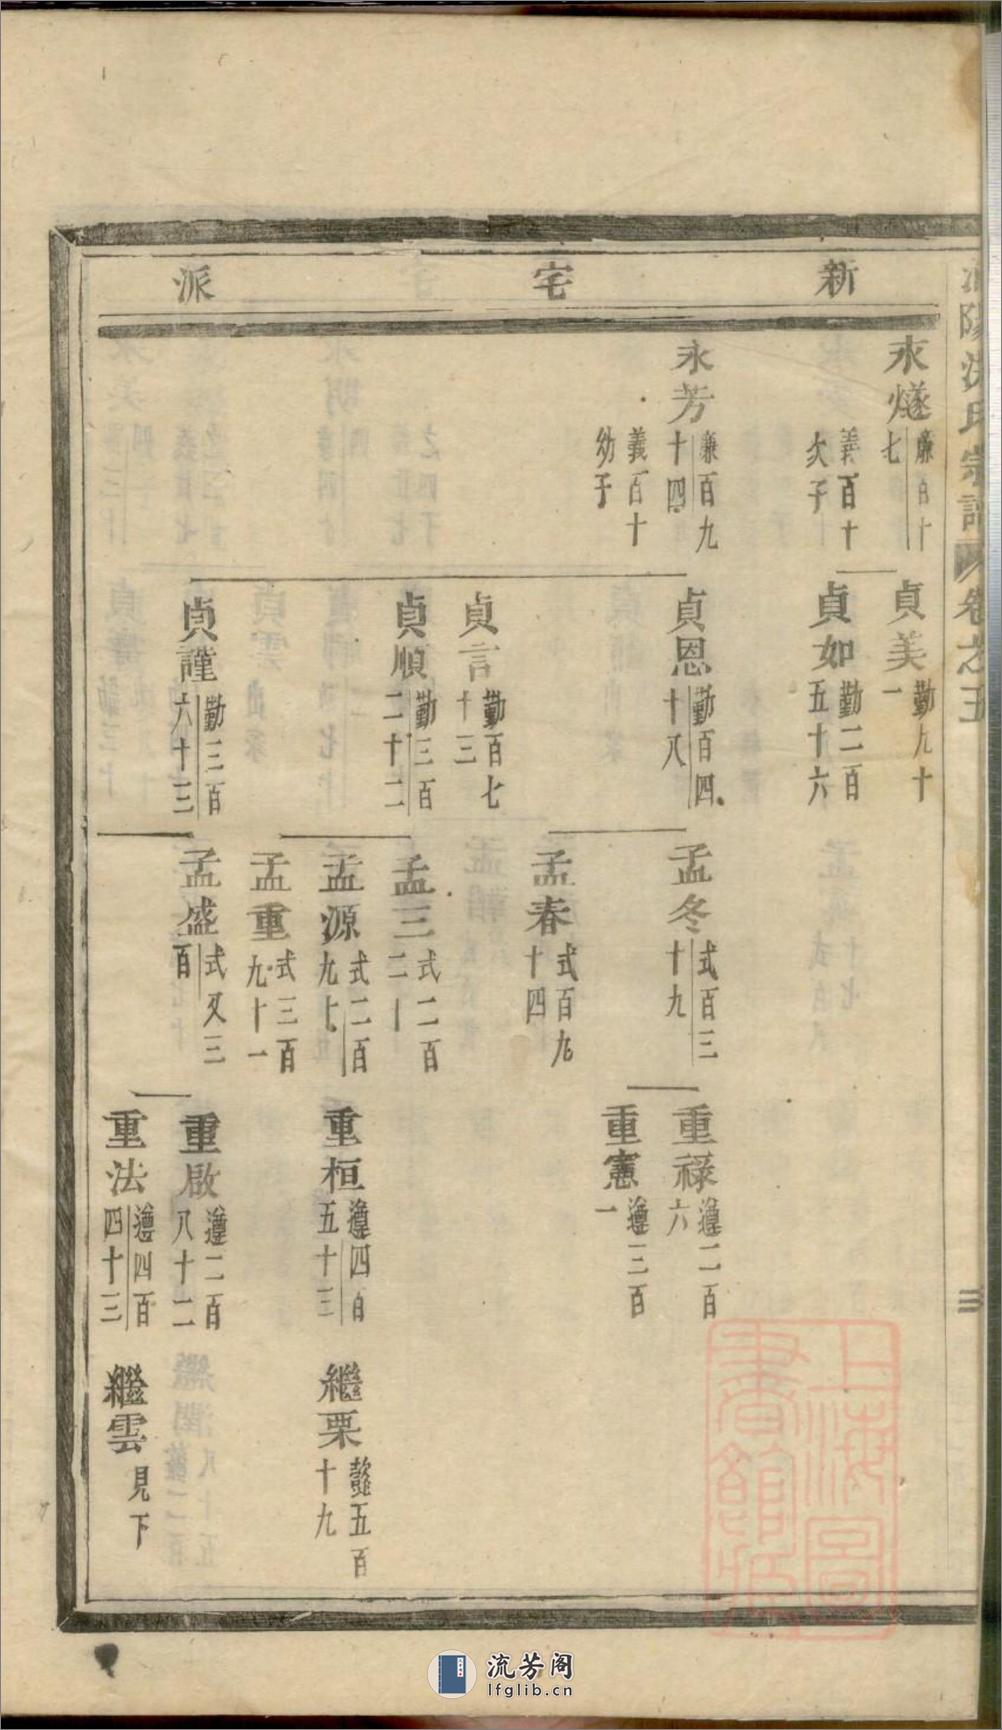 新宅派
永燧 廉百十七 義百十六子
永芳 廉百九十四 義百十幼子
貞美 勤九十一
貞如 勤二百五十六
貞恩 勤百四十八
貞言 勤百七十三
貞順 勤三百二十二
貞謹 勤三百六十三
孟冬 式百三十九
孟春 式百九十四
孟三 式二百二十
孟源 式二百九十
孟重 式三百九十一
孟盛 式又三百
重祿 遵二百六
重憲 遵三百一
重桓 遵四百五十三
重啟 遵二百八十二
重法 遵四百四十三
繼栗 懿五百十九
繼雲 見下
氏宗譜 卷之五
三
上海圖書館藏
流芳阁
lfglib.cn